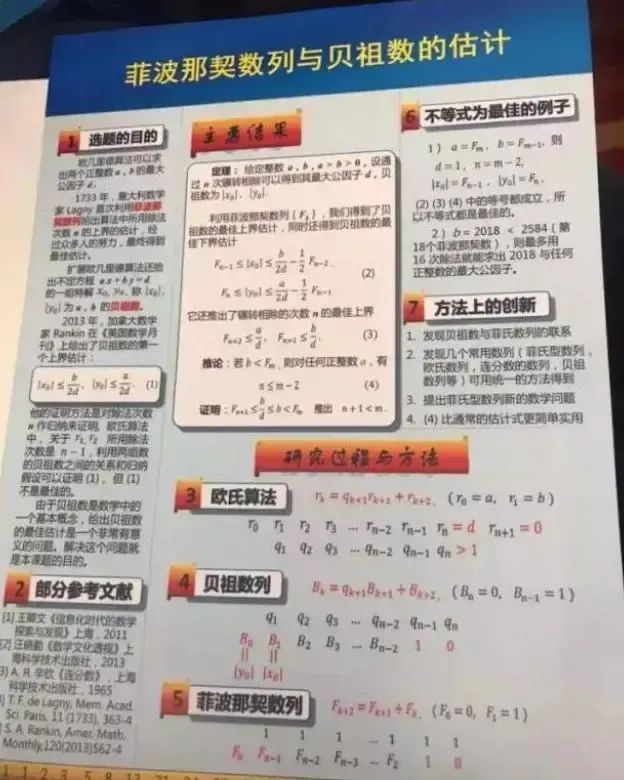 菲波那契数列与贝祖数的估计
1 选题的目的
欧几里德算法可以求
出两个正整数 a, b 的最大
公因子 d.
1733 年, 意大利数学
家 Lagny 首次利用菲波那
契数列给出算法中所用除法
次数 n 的上界的估计, 经
过众人的努力, 最终得到
最佳估计.
扩展欧几里德算法还给
出不定方程 ax+by=d
的一组特解 x₀, y₀, 称 |x₀|,
|y₀| 为 a, b 的贝祖数.
2013 年, 加拿大数学
家 Rankin 在《美国数学月
刊》上给出了贝祖数的第一
个上界估计:
|x₀| ≤ b/2d, |y₀| ≤ a/2d. (1)
他的证明方法是对除法次数
n 作归纳来证明, 欧氏算法
中, 关于 r₁, r₂ 所用除法
次数是 n − 1, 利用两组数
的贝祖数之间的关系和归纳
假设可以证明 (1), 但 (1)
不是最佳的.
由于贝祖数是数学中的
一个基本概念, 给出贝祖数
的最佳估计是一个非常有意
义的问题. 解决这个问题就
是本课题的目的.
2 部分参考文献
[1] 王元《信息化时代的数学
探索与发现》上海, 2011
[2] 汪晓勤《数学文化透视》上
海科学技术出版社, 2013
3) А. Я. 辛钦《连分数》, 上海
科学技术出版社, 1965
T. F. de Lagny, Mem. Acad.
Sci. Paris, 11 (1733), 363-4
S. A. Rankin, Amer. Math.
Monthly, 120(2013)562-4
主要结果
定理: 给定整数 a, b, a > b > 0, 设通
过 n 次辗转相除可以得到其最大公因子 d, 贝
祖数为 |x₀|, |y₀|.
利用菲波那契数列 {Fₖ}, 我们得到了贝
祖数的最佳上界估计, 同时还得到贝祖数的最
佳下界估计
Fₙ₋₁ ≤ |x₀| ≤ b/2d − 1/2 Fₙ₋₂,
(2)
Fₙ ≤ |y₀| ≤ a/2d − 1/2 Fₙ₋₁
它还推出了辗转相除的次数 n 的最佳上界
Fₙ₊₂ ≤ a/d, Fₙ₊₁ ≤ b/d. (3)
推论: 若 b < Fₘ, 则对任何正整数 a, 有
n ≤ m − 2 (4)
证明: Fₙ₊₁ ≤ b/d ≤ b < Fₘ 推出 n + 1 < m.
6 不等式为最佳的例子
1) a = Fₘ, b = Fₘ₋₁, 则
d = 1, n = m − 2,
|x₀| = Fₙ₋₁, |y₀| = Fₙ.
(2) (3) (4) 中的等号都成立, 所
以不等式都是最佳的.
2) b = 2018 < 2584 (第
18个菲波那契数), 则最多用
16 次除法就能求出 2018 与任何
正整数的最大公因子.
7 方法上的创新
1. 发现贝祖数与菲氏数列的联系
2. 发现几个常用数列 (菲氏型数列,
欧氏数列, 连分数的数列, 贝祖
数列等) 可用统一的方法得到
3. 提出菲氏型数列新的数学问题
4. (4) 比通常的估计式更简单实用
研究过程与方法
3 欧氏算法 rₖ = qₖ₊₁rₖ₊₁ + rₖ₊₂, (r₀ = a, r₁ = b)
r₀ r₁ r₂ r₃ ... rₙ₋₂ rₙ₋₁ rₙ = d rₙ₊₁ = 0
q₁ q₂ q₃ ... qₙ₋₂ qₙ₋₁ qₙ > 1
4 贝祖数列 Bₖ = qₖ₊₁Bₖ₊₁ + Bₖ₊₂, (Bₙ = 0, Bₙ₋₁ = 1)
q₁ q₂ q₃ ... qₙ₋₂ qₙ₋₁ qₙ
B₀ B₁ B₂ B₃ ... Bₙ₋₂ 1 0
|| ||
|y₀| |x₀|
5 菲波那契数列 Fₖ₊₂ = Fₖ₊₁ + Fₖ, (F₀ = 0, F₁ = 1)
1 1 1 ... 1 1 1
Fₙ Fₙ₋₁ Fₙ₋₂ Fₙ₋₃ ... F₂ 1 0
1 1 2 3 5 8 13 21